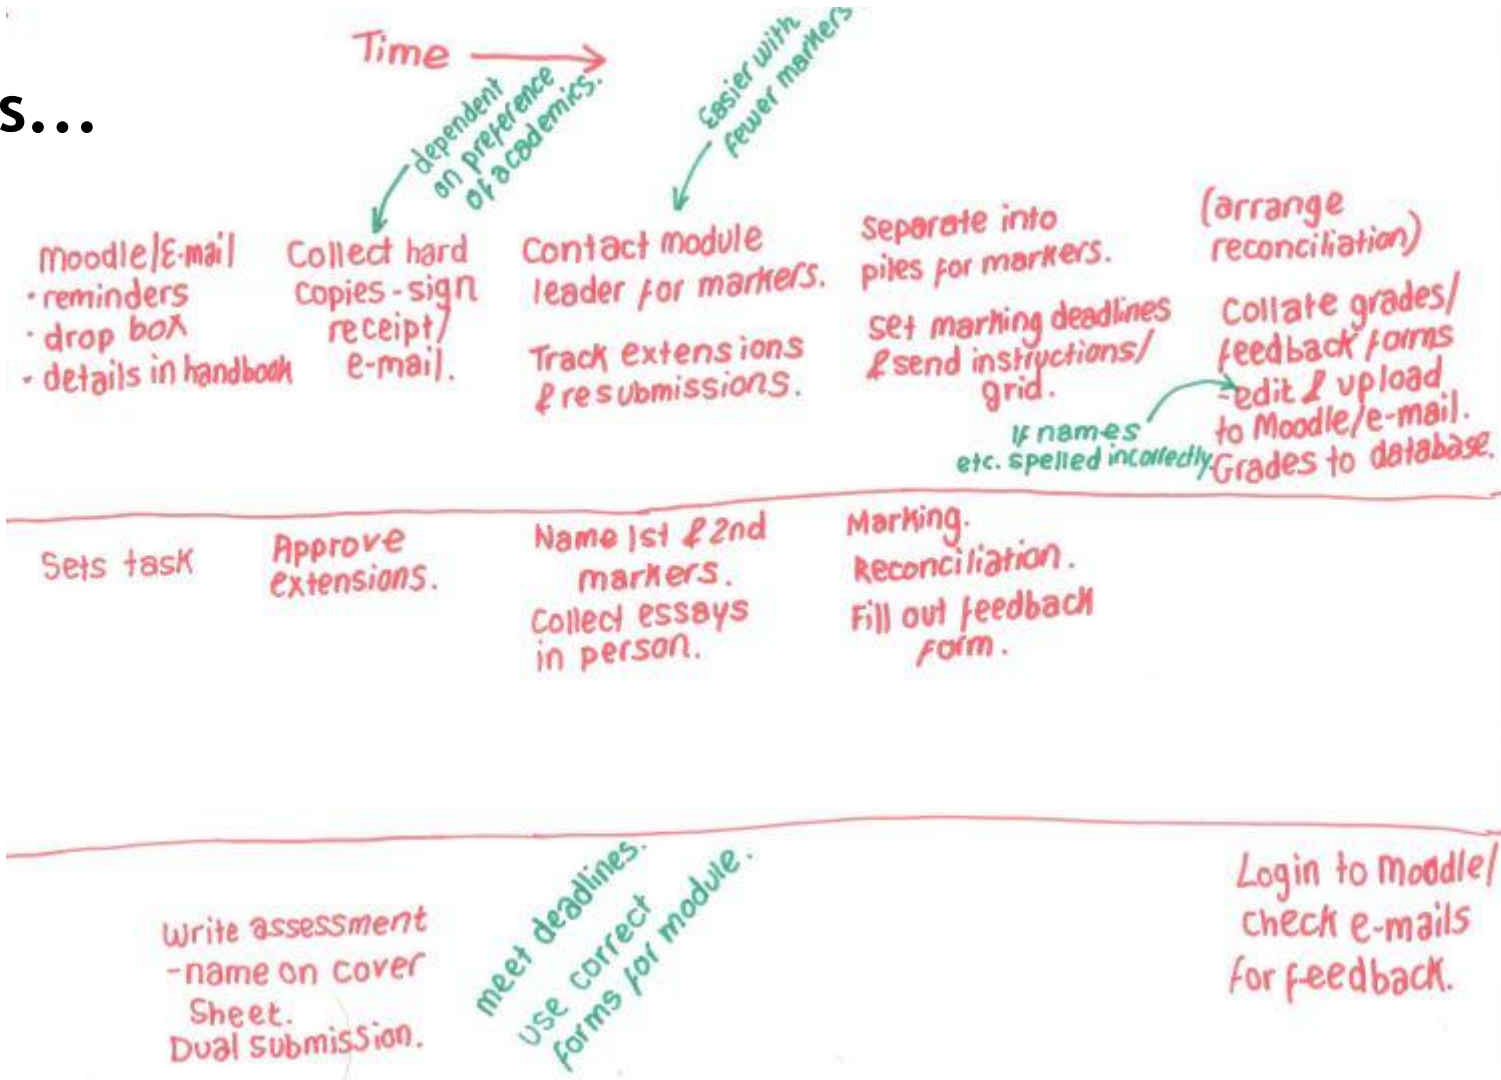 s...
Time
dependent
on preference
of academics.
Easier with
fewer markers
Moodle/E-mail
· reminders
· drop box
· details in handbook
Collect hard
copies - sign
receipt/
e-mail.
Contact module
leader for markers.
Track extensions
& resubmissions.
Separate into
piles for markers.
Set marking deadlines
& send instructions/
grid.
(arrange
reconciliation)
Collate grades/
feedback forms
-edit & upload
to Moodle/e-mail.
Grades to database.
If names
etc. spelled incorrectly.
Sets task
Approve
extensions.
Name 1st & 2nd
markers.
Collect essays
in person.
Marking.
Reconciliation.
Fill out feedback
form.
Write assessment
-name on cover
Sheet.
Dual submission.
meet deadlines.
use correct
forms for module.
Login to Moodle/
check e-mails
for feedback.